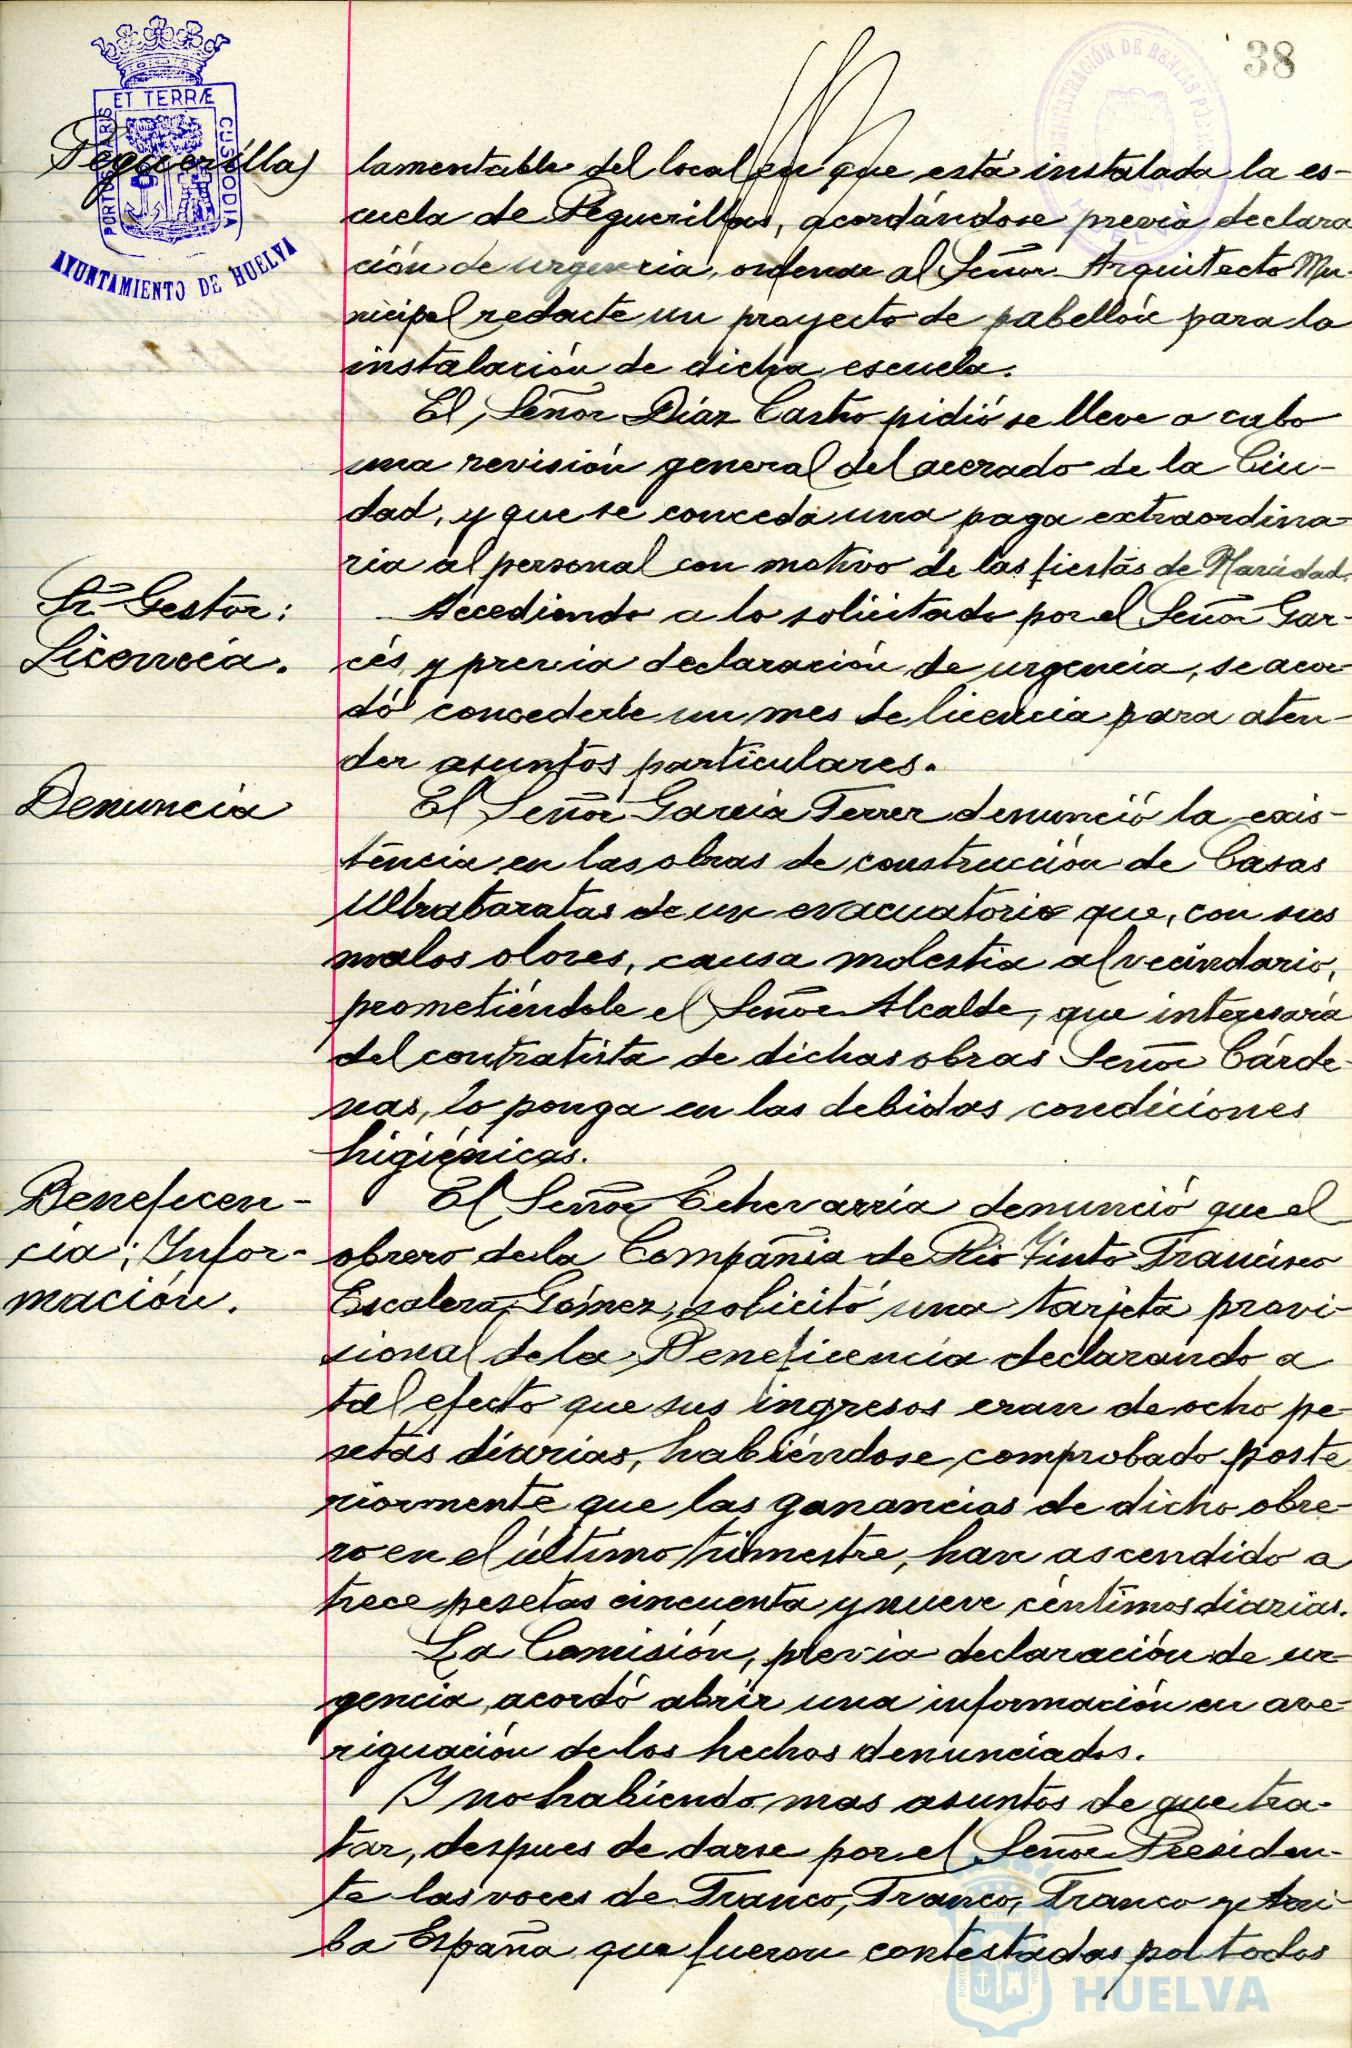 38
ET TERRÆ
PORTUS MARIS
CUSTODIA
AYUNTAMIENTO DE HUELVA
ADMINISTRACIÓN DE RENTAS PÚBLICAS
Peguerillas
lamentable del local en que está instalada la es-
cuela de Peguerillas, acordándose previa declara
ción de urgencia, ordenar al Señor Arquitecto Mu-
nicipal redacte un proyecto de pabellón para la
instalación de dicha escuela.
El Señor Díaz Castro pidió se lleve a cabo
una revisión general del acerado de la Ciu-
dad, y que se conceda una paga extraordina-
ria al personal con motivo de las fiestas de Navidad.
Sr. Gestor:
Licencia.
Accediendo a lo solicitado por el Señor Gar-
cés, y previa declaración de urgencia, se acor-
dó concederle un mes de licencia para aten-
der asuntos particulares.
Denuncia
El Señor García Ferrer denunció la exis-
tencia en las obras de construcción de Casas
Ultrabaratas de un evacuatorio que, con sus
malos olores, causa molestia al vecindario,
prometiéndole el Señor Alcalde, que interesaría
del contratista de dichas obras Señor Cárde-
nas, lo ponga en las debidas condiciones
higiénicas.
Beneficen-
cia; Infor-
mación.
El Señor Echevarría denunció que el
obrero de la Compañía de Rio Tinto Francisco
Escalera Gómez, solicitó una tarjeta provi-
sional de la Beneficencia declarando a
tal efecto que sus ingresos eran de ocho pe-
setas diarias, habiéndose comprobado poste
riormente que las ganancias de dicho obre-
ro en el último trimestre, han ascendido a
trece pesetas cincuenta y nueve céntimos diarias.
La Comisión, previa declaración de ur-
gencia, acordó abrir una información en ave-
riguación de los hechos denunciados.
Y no habiendo mas asuntos de que tra-
tar, despues de darse por el Señor Presiden-
te las voces de Franco, Franco, Franco y Arri-
ba España que fueron contestadas por todos
HUELVA